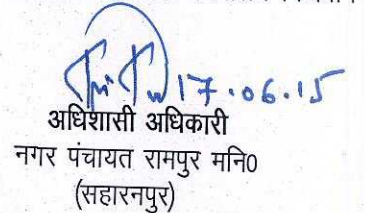 17.06.15
अधिशासी अधिकारी
नगर पंचायत रामपुर मनि0
(सहारनपुर)